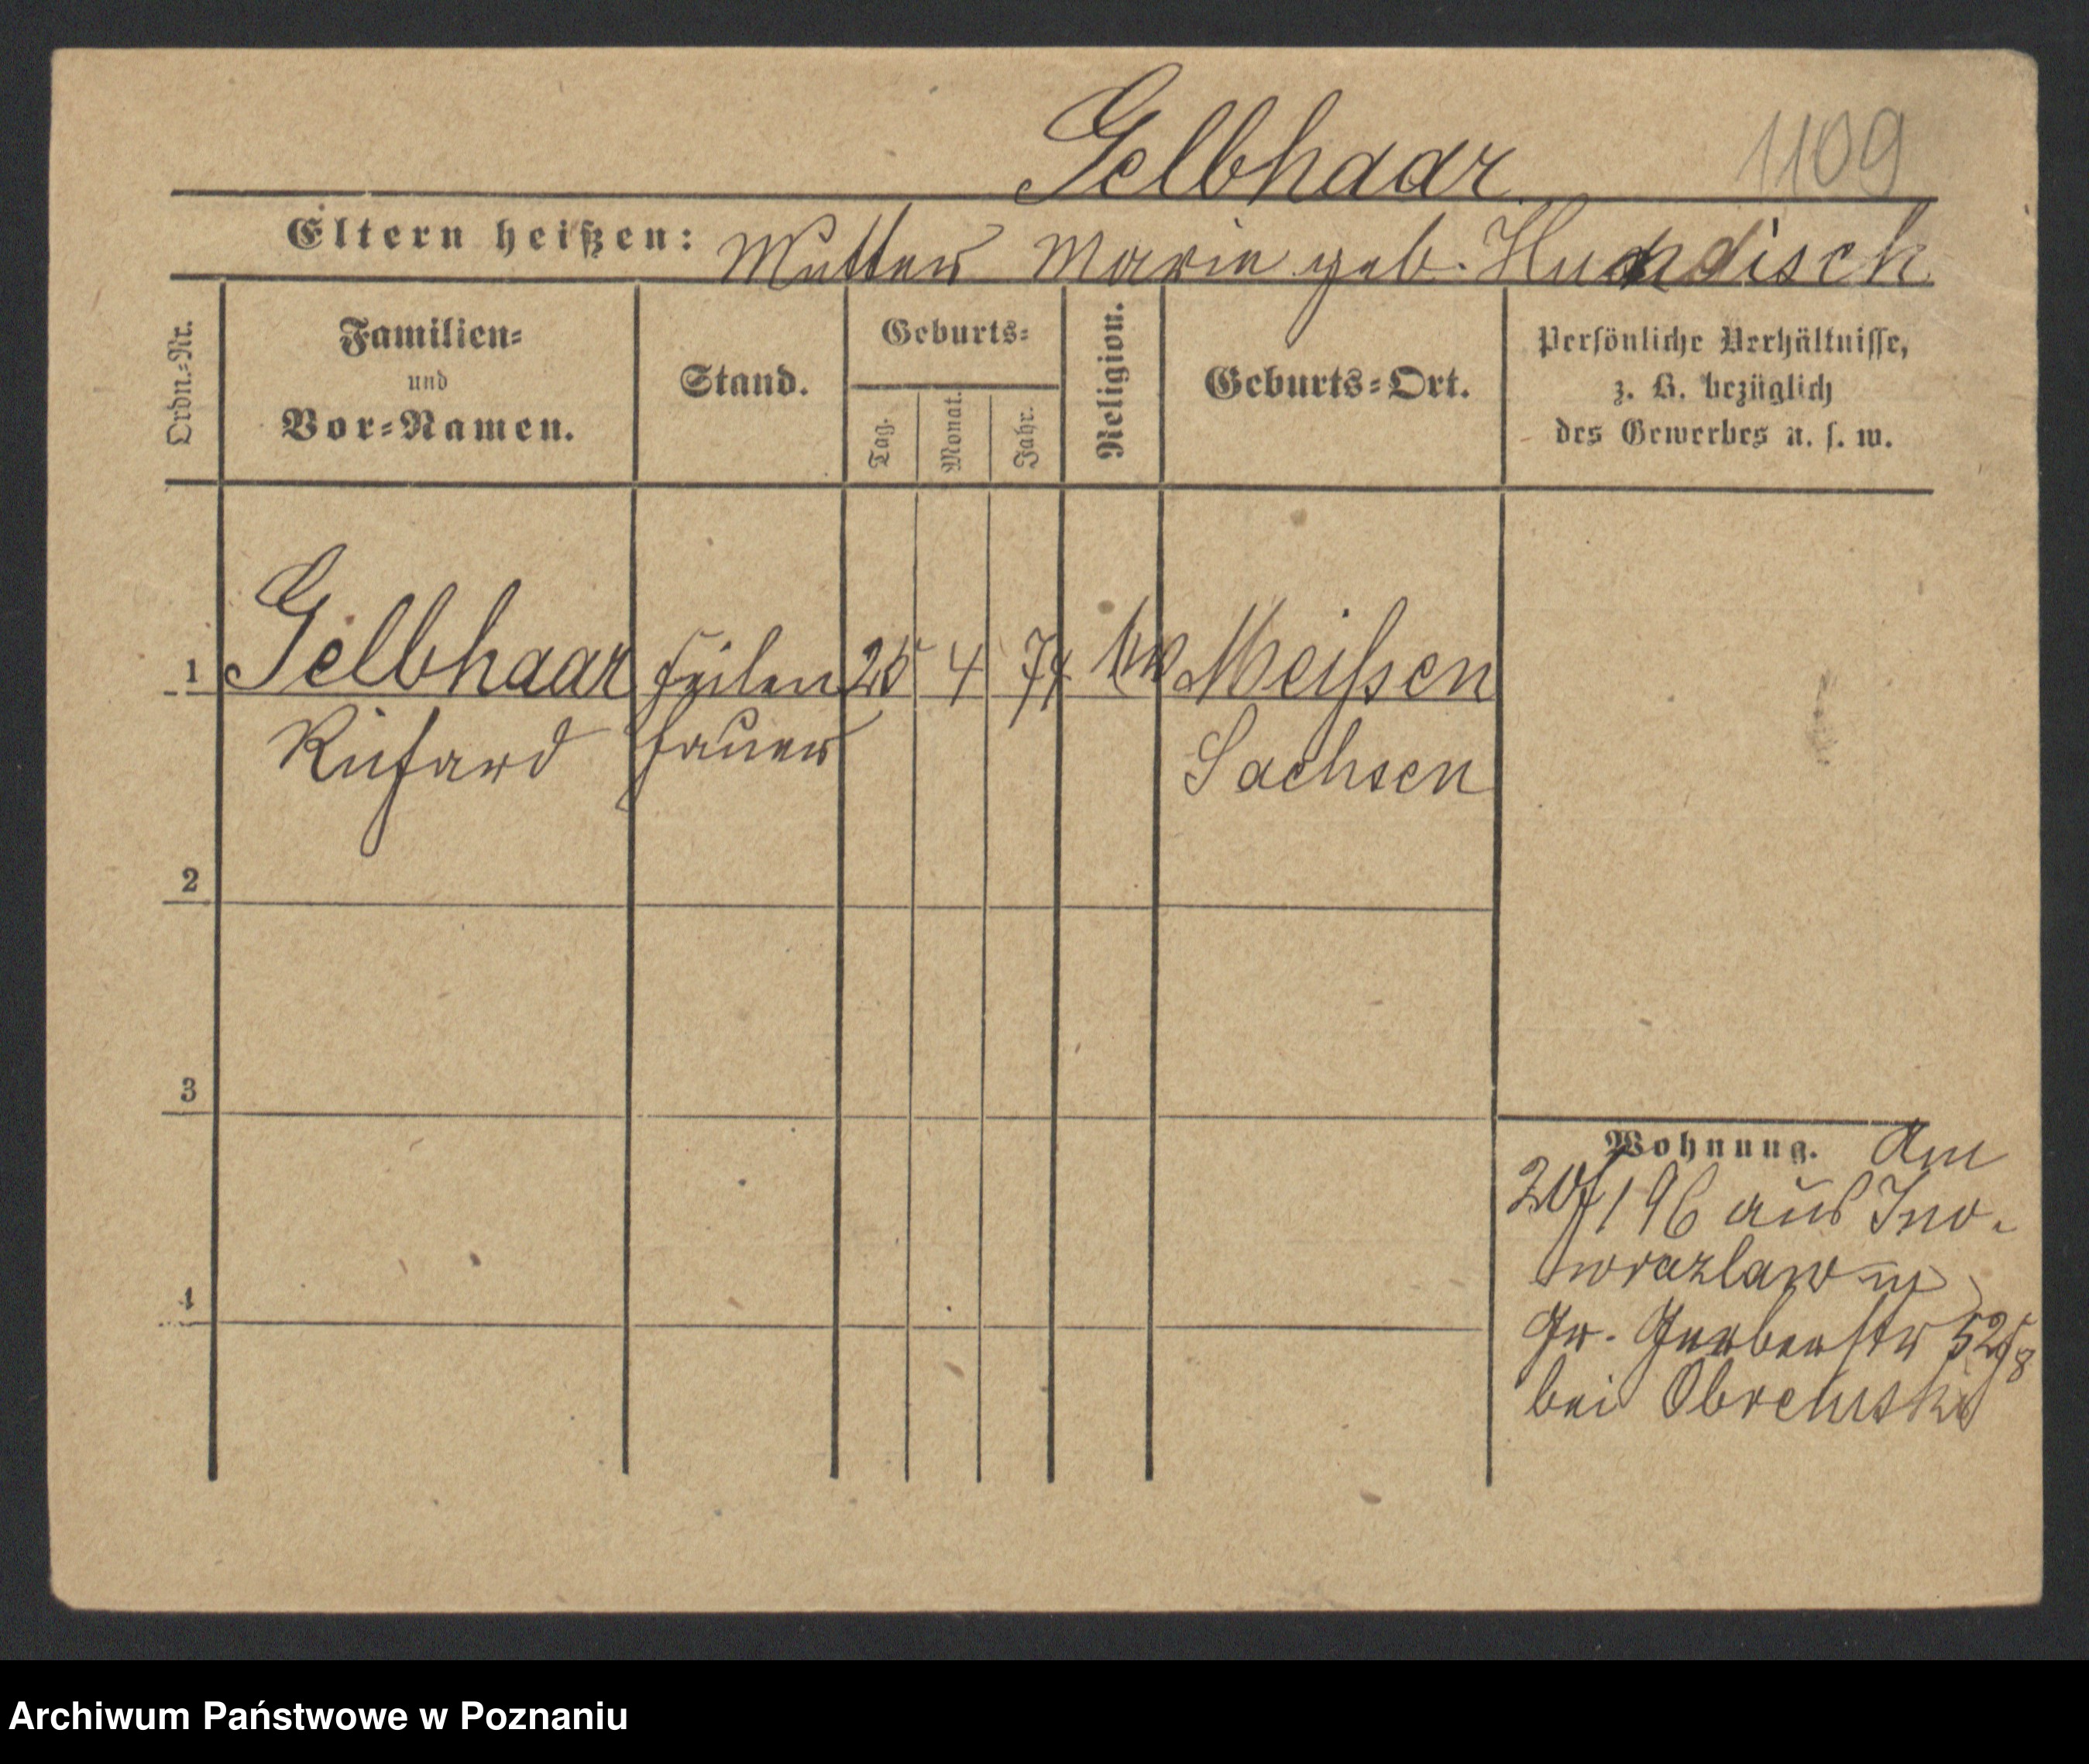 Gelbhaar 1109
Eltern heißen: Mutter Marie geb. Hundisch
Ordn.-Nr.
Familien-
und
Vor-Namen.
Stand.
Geburts-
Tag.
Monat.
Jahr.
Religion.
Geburts-Ort.
Persönliche Verhältnisse,
z. B. bezüglich
des Gewerbes u. s. w.
1 Gelbhaar Feilen 25 4 74 Meißen
Richard hauer Sachsen
2
3
4
Wohnung. Am
20/1 96 aus Ino-
wrazlaw
Gr. Gerberstr 52
bei
Archiwum Państwowe w Poznaniu